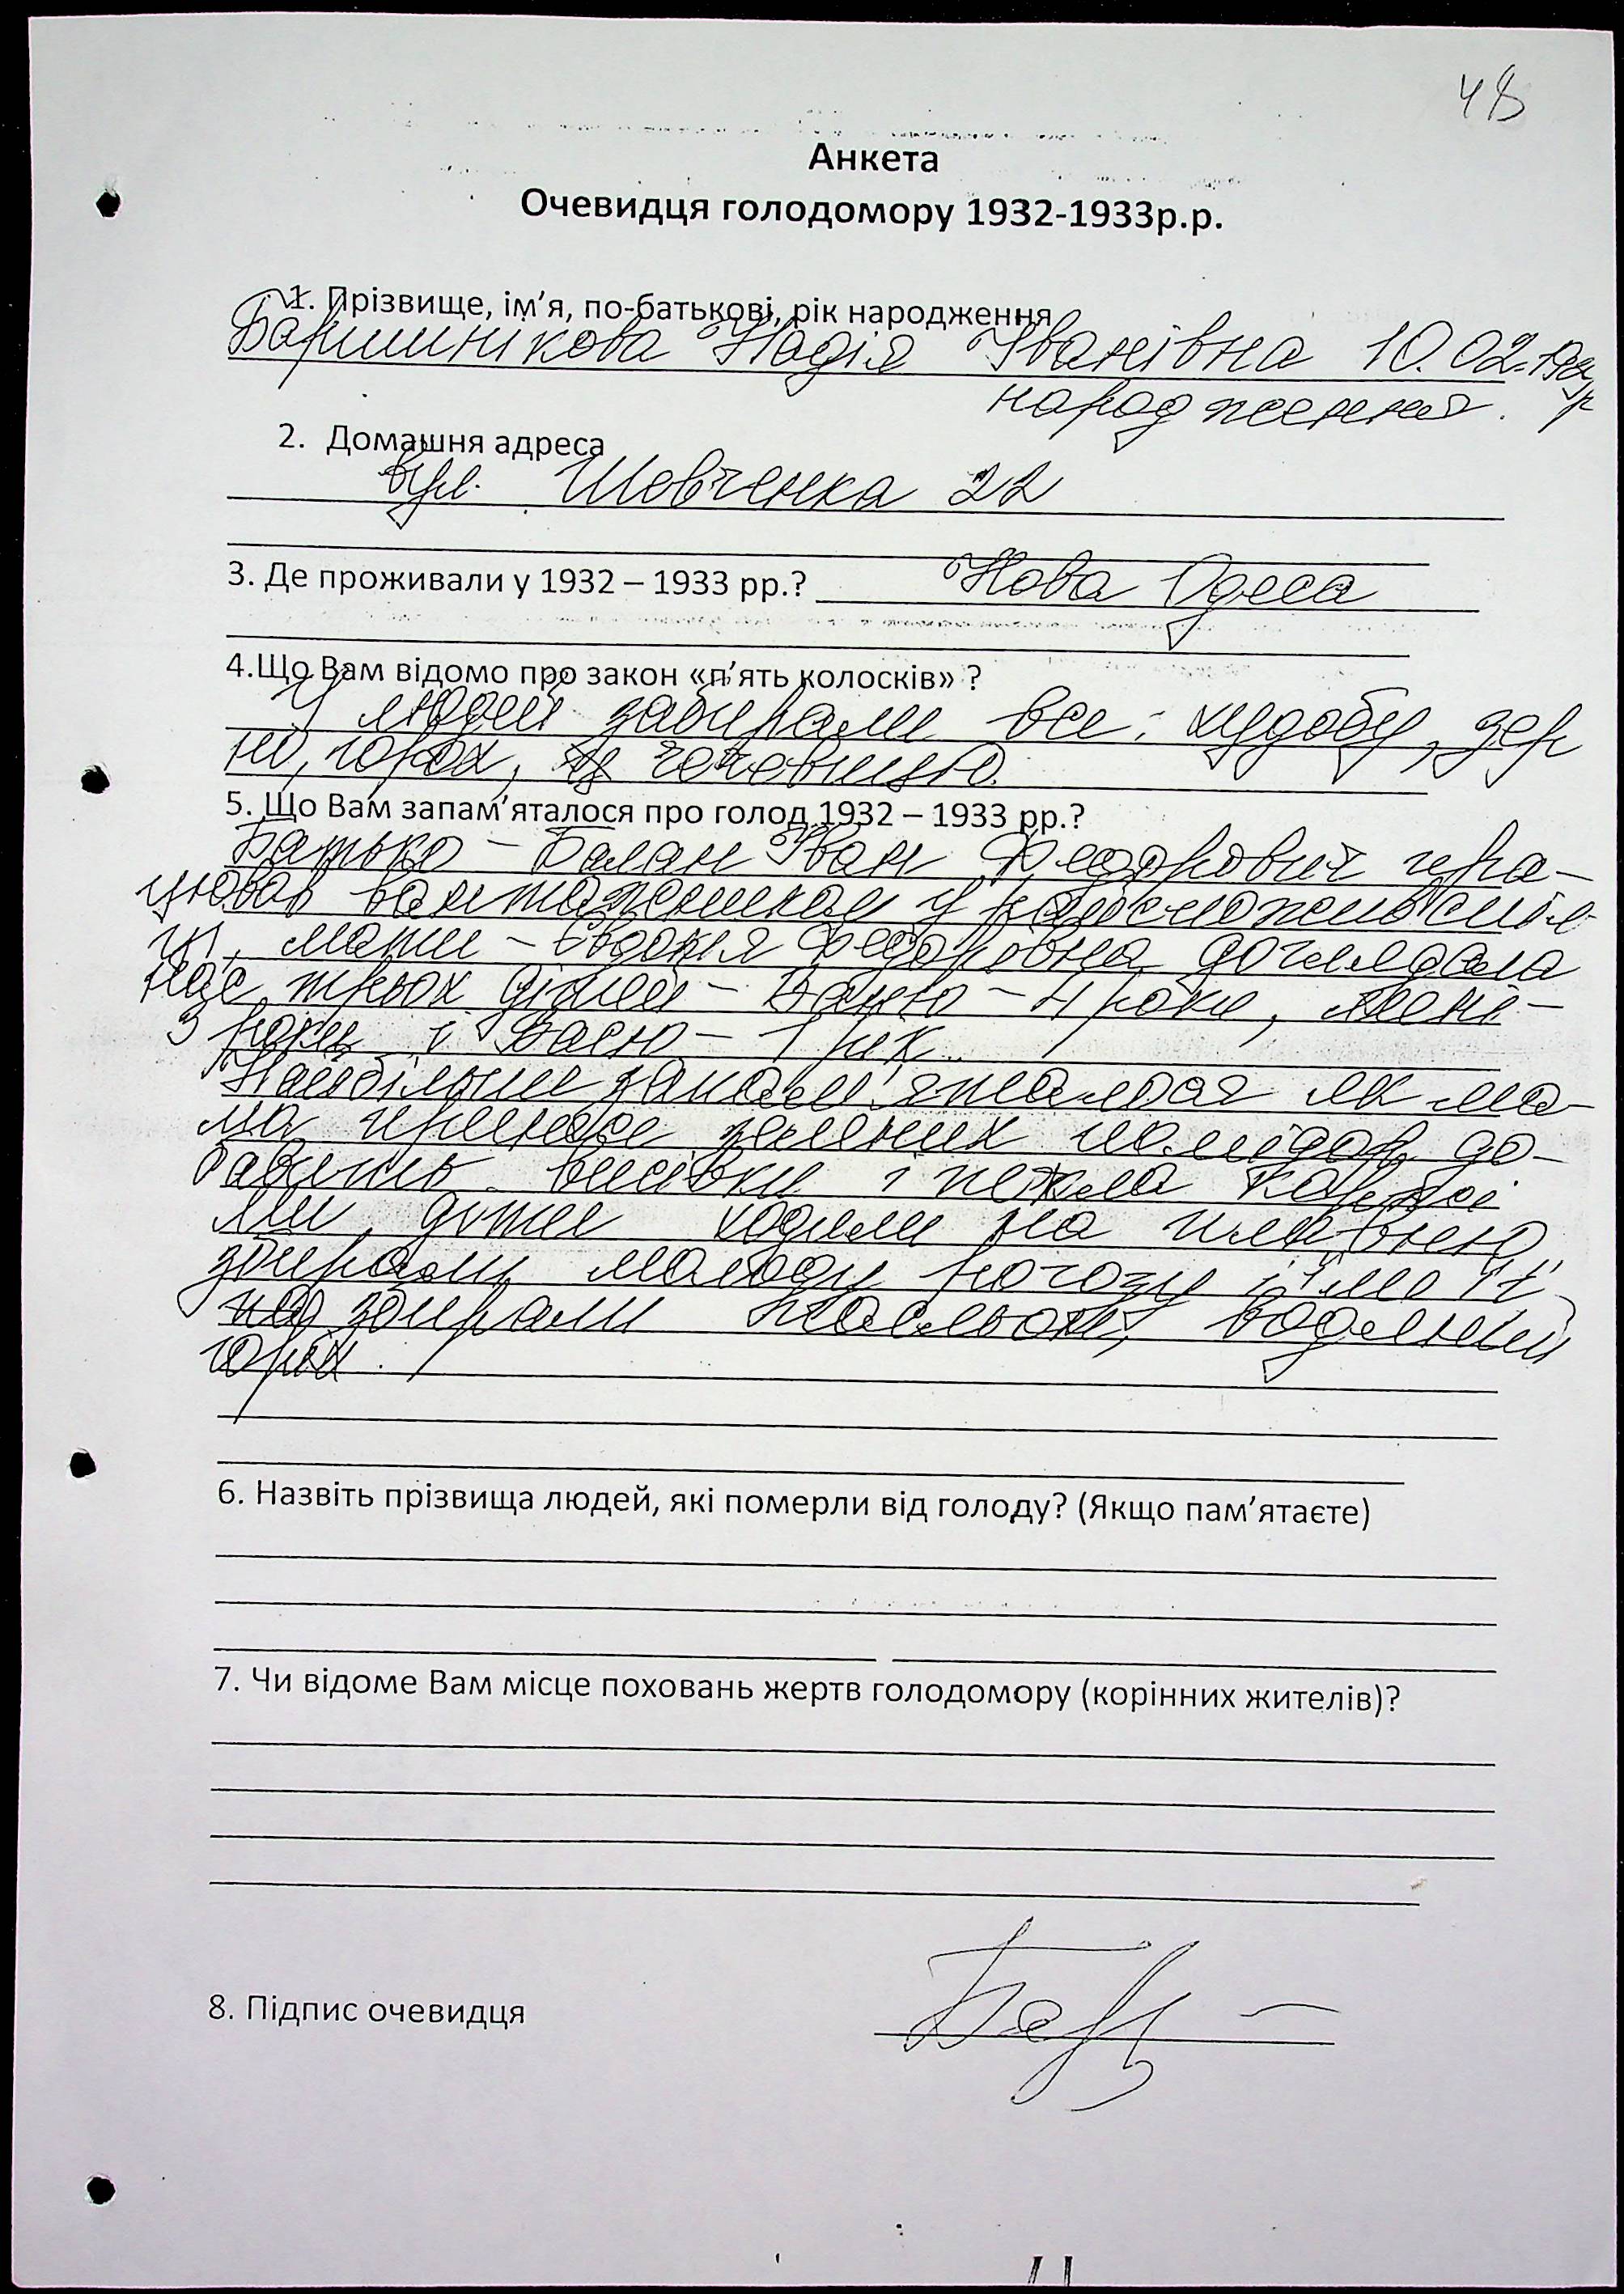 48
Анкета
Очевидця голодомору 1932-1933р.р.
1. Прізвище, ім'я, по-батькові, рік народження
Баришнікова Надія Іванівна 10.02.
народження.
2. Домашня адреса
вул. Шевченка 22
3. Де проживали у 1932 – 1933 рр.? Нова Одеса
4.Що Вам відомо про закон «п'ять колосків» ?
У людей забирали все: худобу, зер
но, горох, чечевицю.
5. Що Вам запам'яталося про голод 1932 – 1933 рр.?
Батько – Балан Іван Федорович пра-
цював вантажником у райспоживспіл-
ці, мати – Євдокія Федоровна доглядала
нас трьох дітей – – 4 роки, мені –
3 роки і Васю – 1 рік.
Найбільше запам'яталося як ма-
ма принесе зелених помідор до-
бавить висівки і пекла коржі
Ми, діти ходили на плавню,
збирали молоду рогозу і їли її,
збирали водяний
горіх.
6. Назвіть прізвища людей, які померли від голоду? (Якщо пам'ятаєте)
7. Чи відоме Вам місце поховань жертв голодомору (корінних жителів)?
8. Підпис очевидця